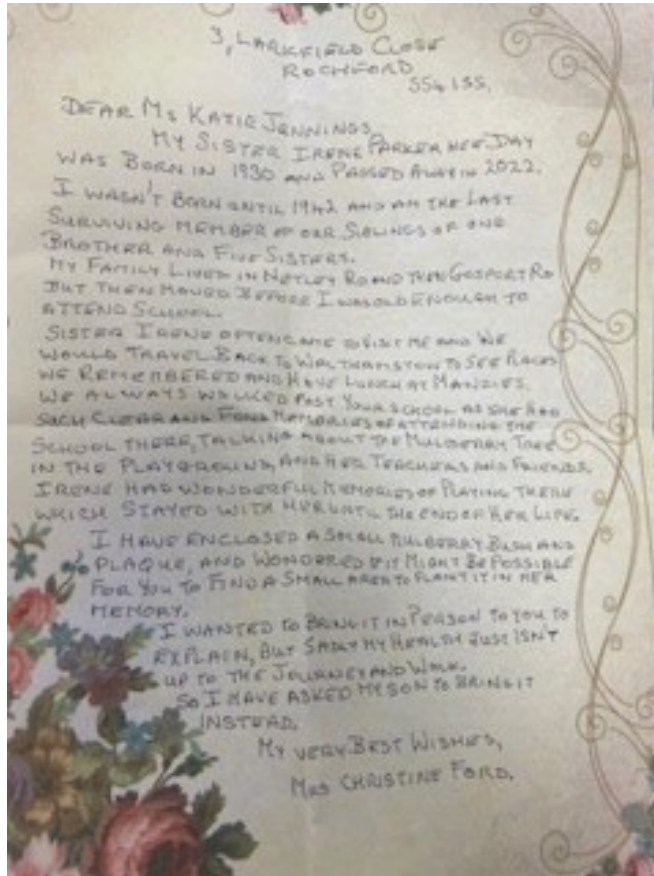 3, LARKFIELD CLOSE
ROCHFORD
SS4 1SS.
DEAR MS KATIE JENNINGS,
MY SISTER IRENE PARKER NEE DAY
WAS BORN IN 1930 AND PASSED AWAY IN 2022.
I WASN'T BORN UNTIL 1942 AND AM THE LAST
SURVIVING MEMBER OF OUR SIBLINGS OF ONE
BROTHER AND FIVE SISTERS.
MY FAMILY LIVED IN NETLEY RD AND THEN GOSPORT RD
BUT THEN MOVED BEFORE I WAS OLD ENOUGH TO
ATTEND SCHOOL.
SISTER IRENE OFTEN CAME TO VISIT ME AND WE
WOULD TRAVEL BACK TO WALTHAMSTOW TO SEE PLACES
WE REMEMBERED AND HAVE LUNCH AT MANZIES.
WE ALWAYS WALKED PAST YOUR SCHOOL AS SHE HAD
SUCH CLEAR AND FOND MEMORIES OF ATTENDING THE
SCHOOL THERE, TALKING ABOUT THE MULBERRY TREE
IN THE PLAYGROUND, AND HER TEACHERS AND FRIENDS.
IRENE HAD WONDERFUL MEMORIES OF PLAYING THERE
WHICH STAYED WITH HER UNTIL THE END OF HER LIFE.
I HAVE ENCLOSED A SMALL MULBERRY BUSH AND
PLAQUE, AND WONDERED IF IT MIGHT BE POSSIBLE
FOR YOU TO FIND A SMALL AREA TO PLANT IT IN HER
MEMORY.
I WANTED TO BRING IT IN PERSON TO YOU TO
EXPLAIN, BUT SADLY MY HEALTH JUST ISN'T
UP TO THE JOURNEY AND WALK.
SO I HAVE ASKED MY SON TO BRING IT
INSTEAD.
MY VERY BEST WISHES,
MRS CHRISTINE FORD.